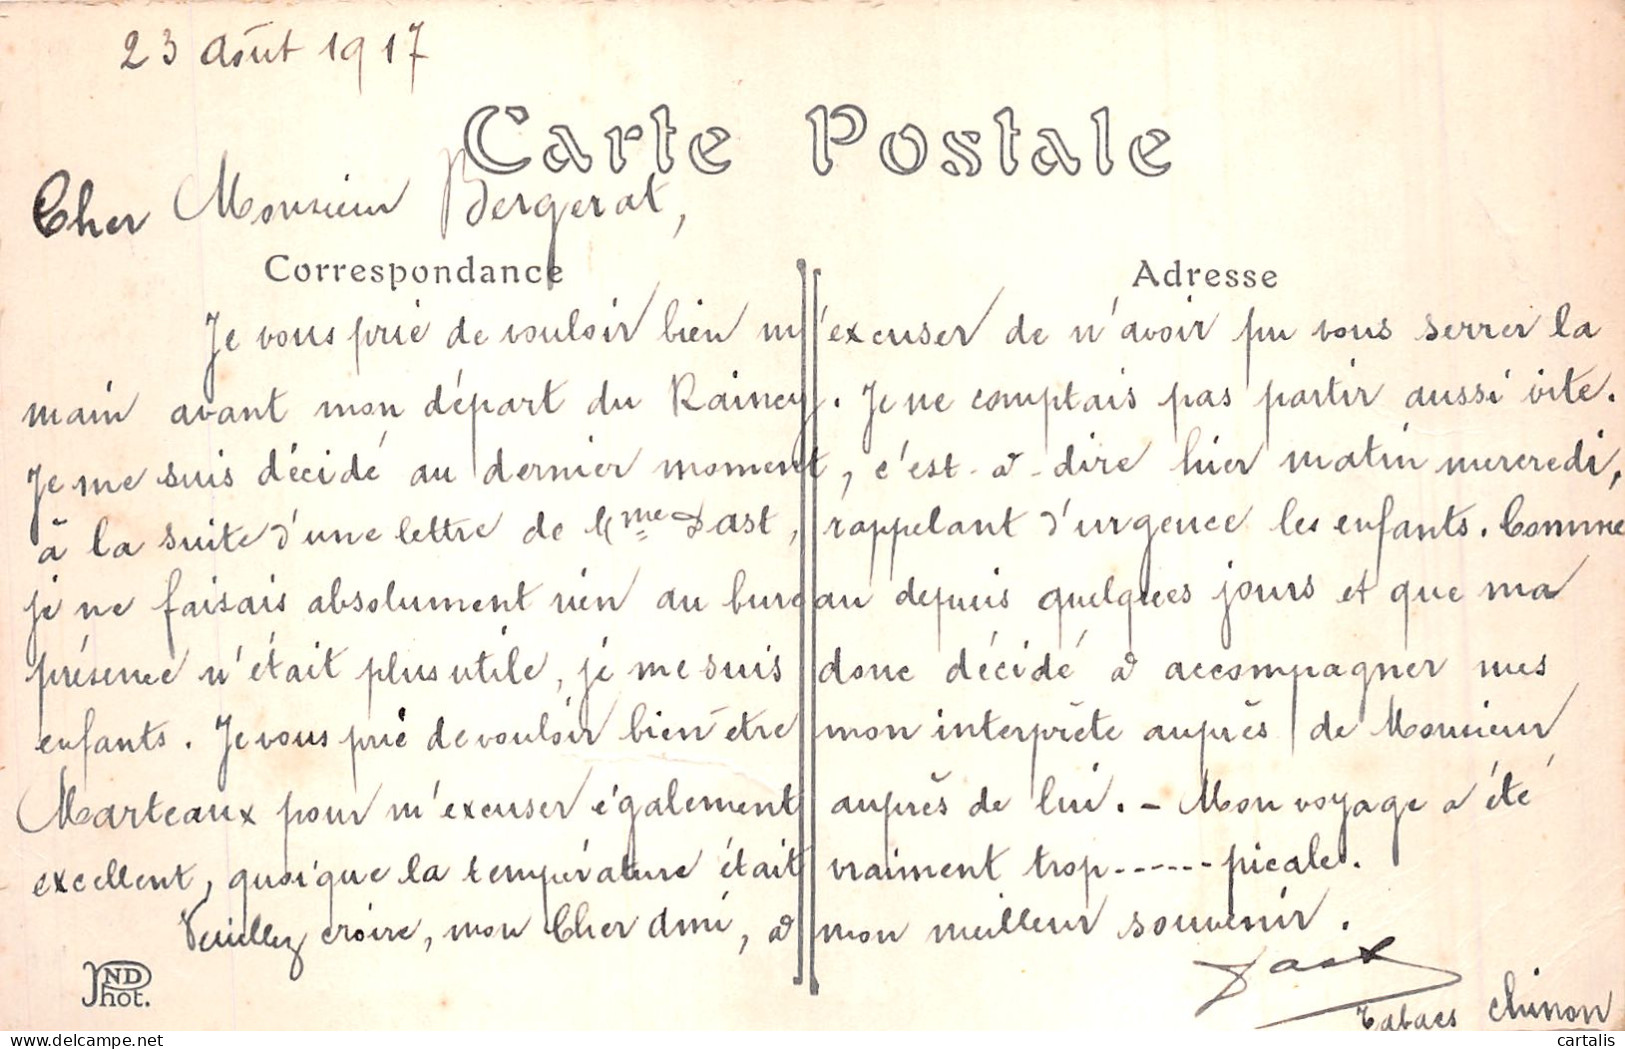 23 Août 1917
Carte Postale
Cher Monsieur Bergerat,
Correspondance
Adresse
Je vous prie de vouloir bien m'excuser de n'avoir pu vous serrer la
main avant mon départ du Raincy. Je ne comptais pas partir aussi vite.
Je me suis décidé au dernier moment, c'est-à-dire hier matin mercredi,
à la suite d'une lettre de Mme Dast, rappelant d'urgence les enfants. Comme
je ne faisais absolument rien au bureau depuis quelques jours et que ma
présence n'était plus utile, je me suis donc décidé à accompagner mes
enfants. Je vous prie de vouloir bien être mon interprète auprès de Monsieur
Marteaux pour m'excuser également auprès de lui. - Mon voyage a été
excellent, quoique la température était vraiment trop-----picale.
Veuillez croire, mon Cher Ami, à mon meilleur souvenir.
Dast
Tabacs Chinon
ND Phot.
delcampe.net
cartalis